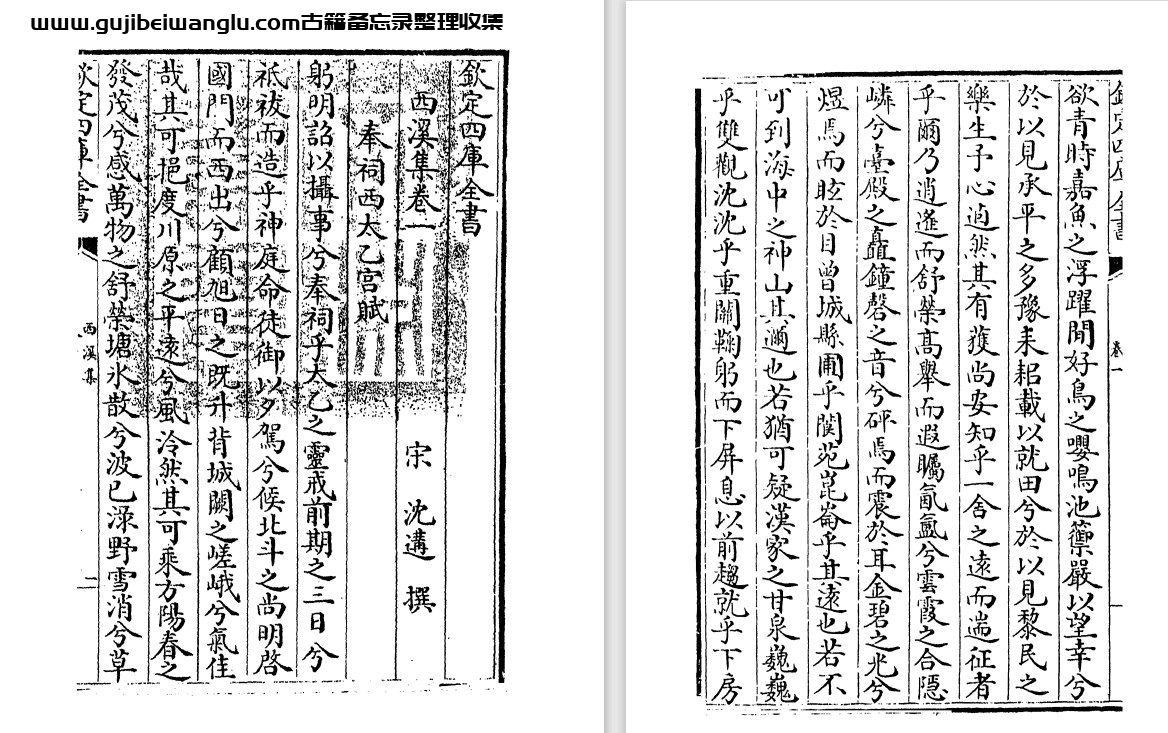 www.gujibeiwanglu.com古籍备忘录整理收集
欽定四庫全書
西溪集卷一
宋 沈遘 撰
奉祠西太乙宮賦
躬明詔以攝事兮奉祠乎太乙之靈戒前期之三日兮
祇祓而造乎神庭命徒御以夕駕兮候北斗之尚明啓
國門而西出兮顧旭日之既升背城闕之嵯峨兮氣佳
哉其可挹度川原之平遠兮風泠然其可乘方陽春之
發茂兮感萬物之舒榮塘氷散兮波已淥野雪消兮草
欽定四庫全書
西溪集
二
欽定四庫全書
卷一
一
欲青時嘉魚之浮躍聞好鳥之嚶鳴池籞嚴以望幸兮
於以見承平之多豫耒耜載以就田兮於以見黎民之
樂生予心逌然其有獲尚安知乎一舍之遠而遄征者
乎爾乃逍遙而舒榮高舉而遐矚氤氳兮雲霞之合隱
嶙兮臺殿之矗鐘磬之音兮砰焉而震於耳金碧之光兮
煜焉而眩於目曾城縣圃乎閬苑崑崙乎其遠也若不
可到海中之神山其邇也若猶可疑漢家之甘泉巍巍
乎雙觀沈沈乎重闈鞠躬而下屏息以前趨就乎下房